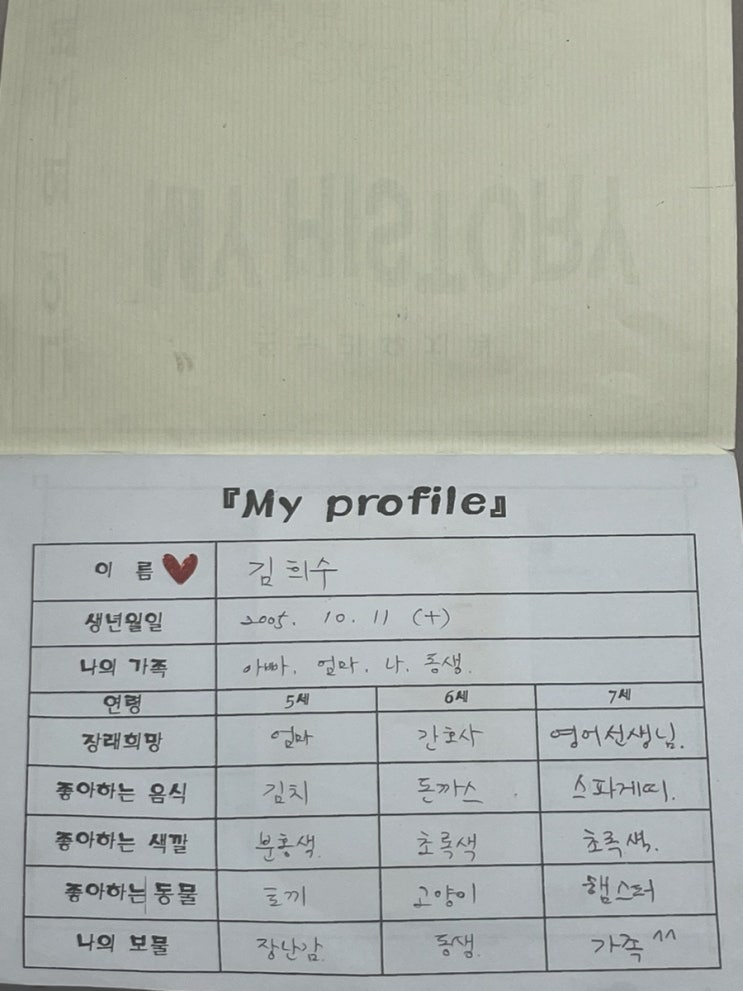 MY HISTORY
『My profile』
이 름 김희수
생년월일 2005. 10. 11 (+)
나의 가족 아빠, 엄마, 나, 동생.
연령 5세 6세 7세
장래희망 엄마 간호사 영어선생님.
좋아하는 음식 김치 돈까스 스파게띠.
좋아하는 색깔 분홍색. 초록색 초록색.
좋아하는 동물 토끼 고양이 햄스터
나의 보물 장난감. 동생. 가족 ^^